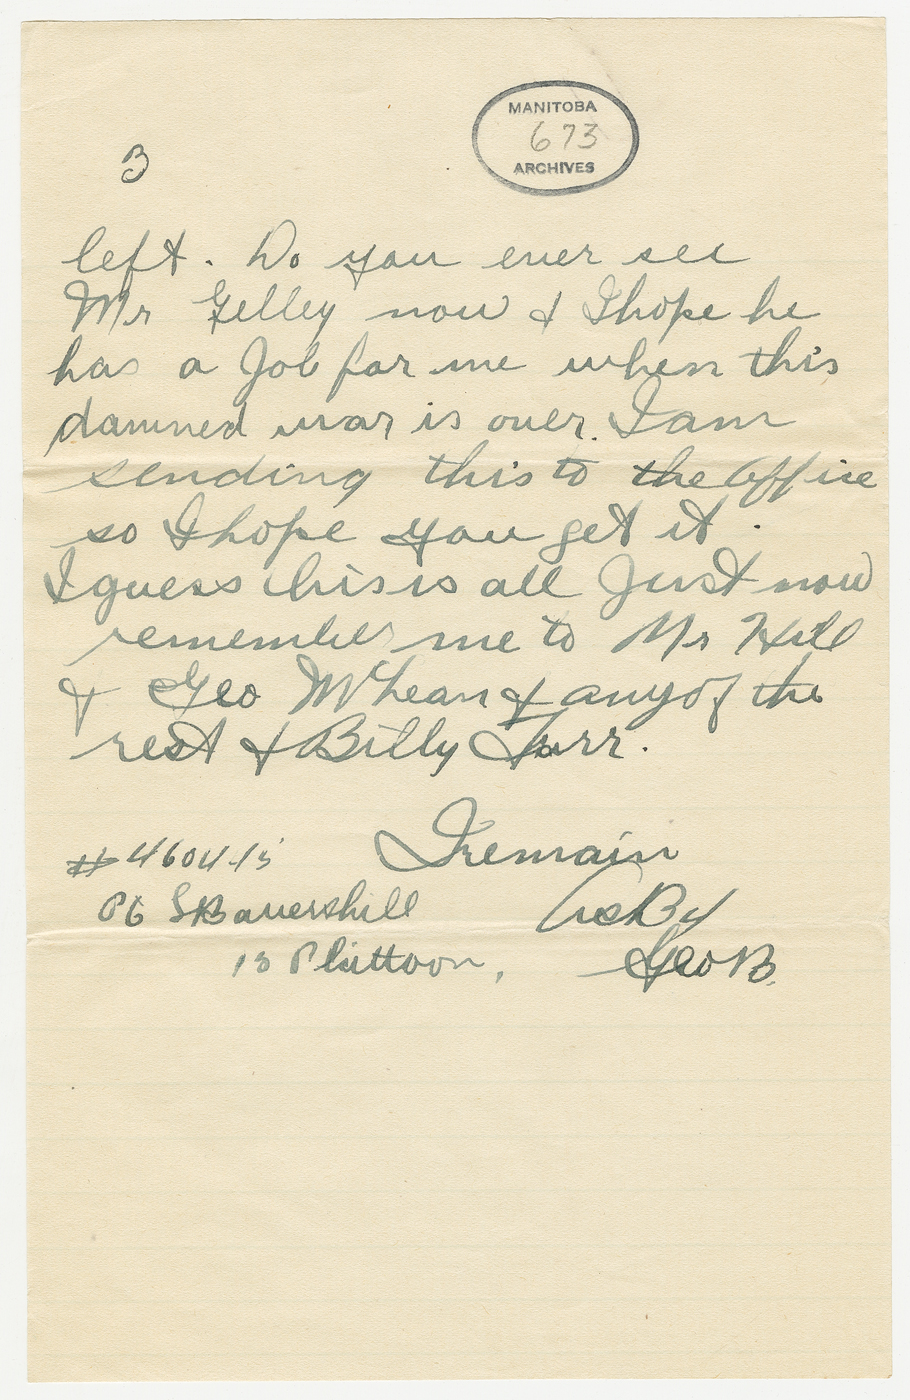 MANITOBA
673
ARCHIVES
3
left. Do you ever see
Mr Gelley now & I hope he
has a Job for me when this
damned war is over. I am
sending this to the office
so I hope you get it.
I guess this is all Just now
remember me to Mr Hill
& Geo McLean & any of the
rest & Billy
I remain
#460415
S B
Geo B.
13 Plattoon,